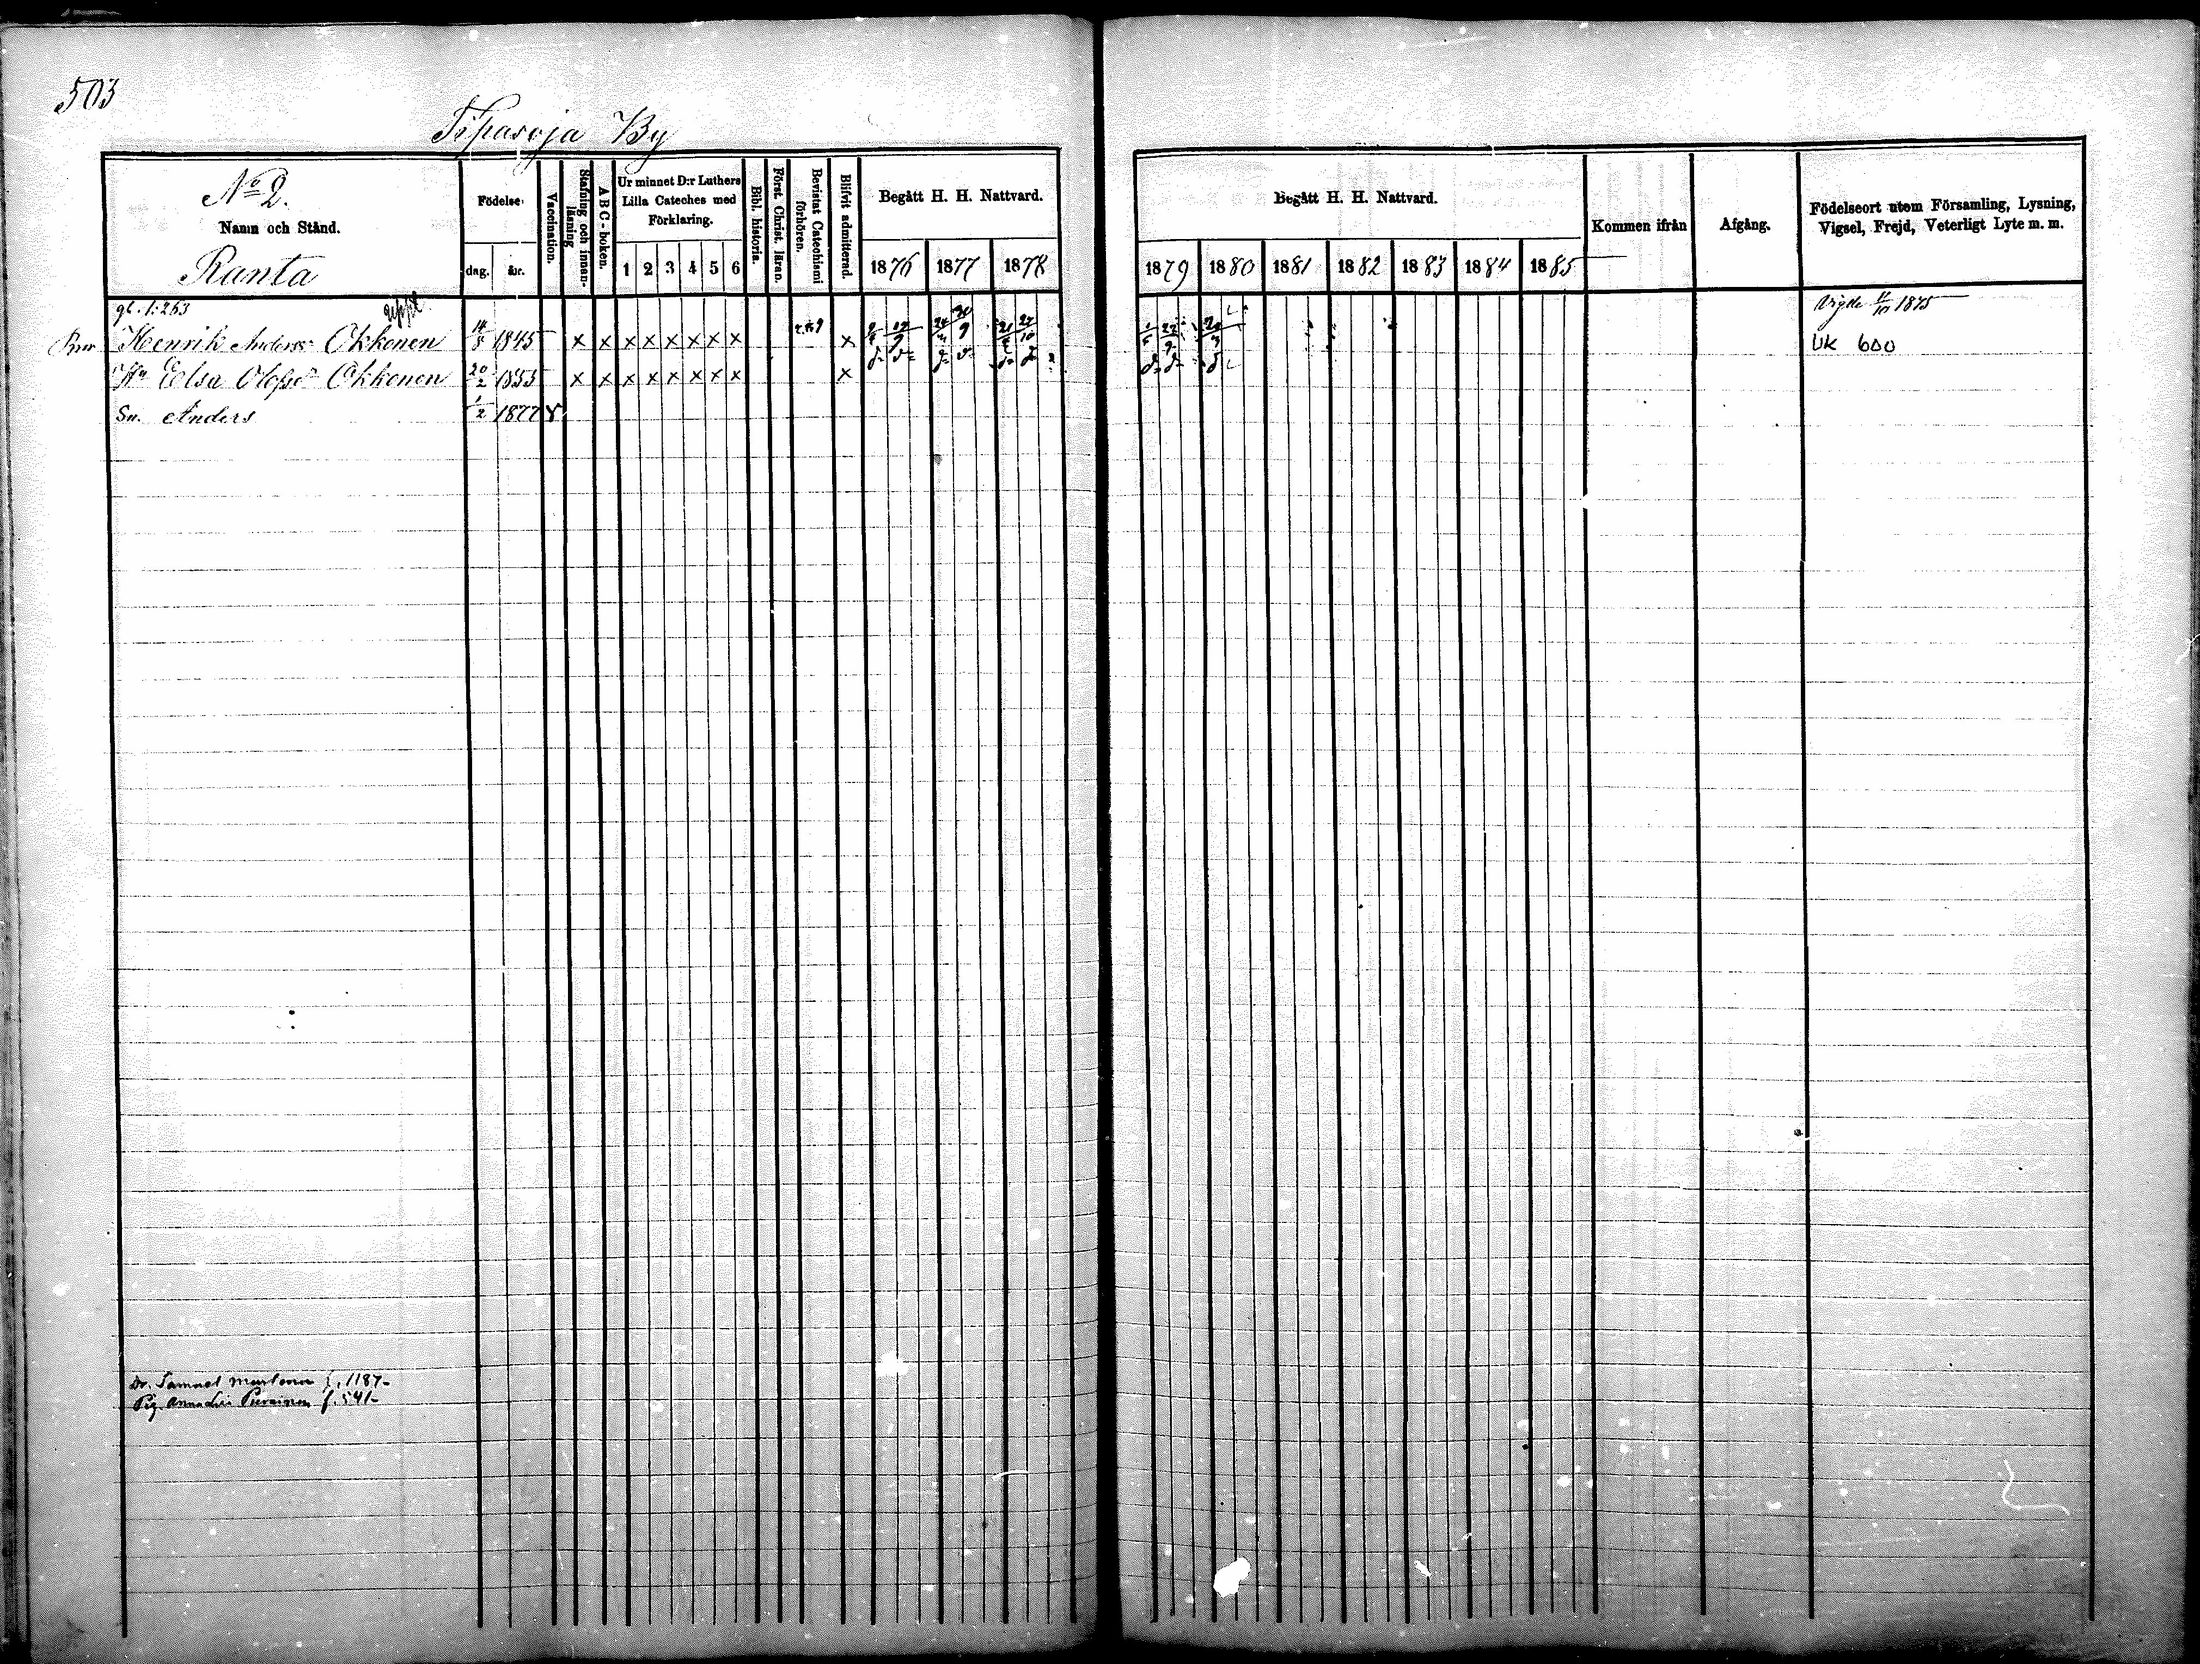 503
Tipasoja By
No 2.
Namn och Stånd.
Ranta
Födelse
dag. år.
Vaccination.
Stafning och innan-läsning
A B C - boken.
Ur minnet D:r Luthers
Lilla Cateches med
Förklaring.
1 2 3 4 5 6
Bibl. historia.
Först. Christ. läran.
Bevistat Catechismi förhören.
Blifvit admitterad.
Begått H. H. Nattvard.
1876 1877 1878
Begått H. H. Nattvard.
1879 1880 1881 1882 1883 1884 1885
Kommen ifrån
Afgång.
Födelseort utom Församling, Lysning,
Vigsel, Frejd, Veterligt Lyte m. m.
gl. 1:263
Vigde 11/10 1875
Henrik Anderss Okkonen 14/8 1845 x x x x x x x x x
UK 600
Hu Elsa Olofsdr Okkonen 20/2 1855 x x x x x x x x x
Sn. Anders 1/2 1877 v
Dr. Samuel f. 1187
Pig. Anna Lisi f. 541